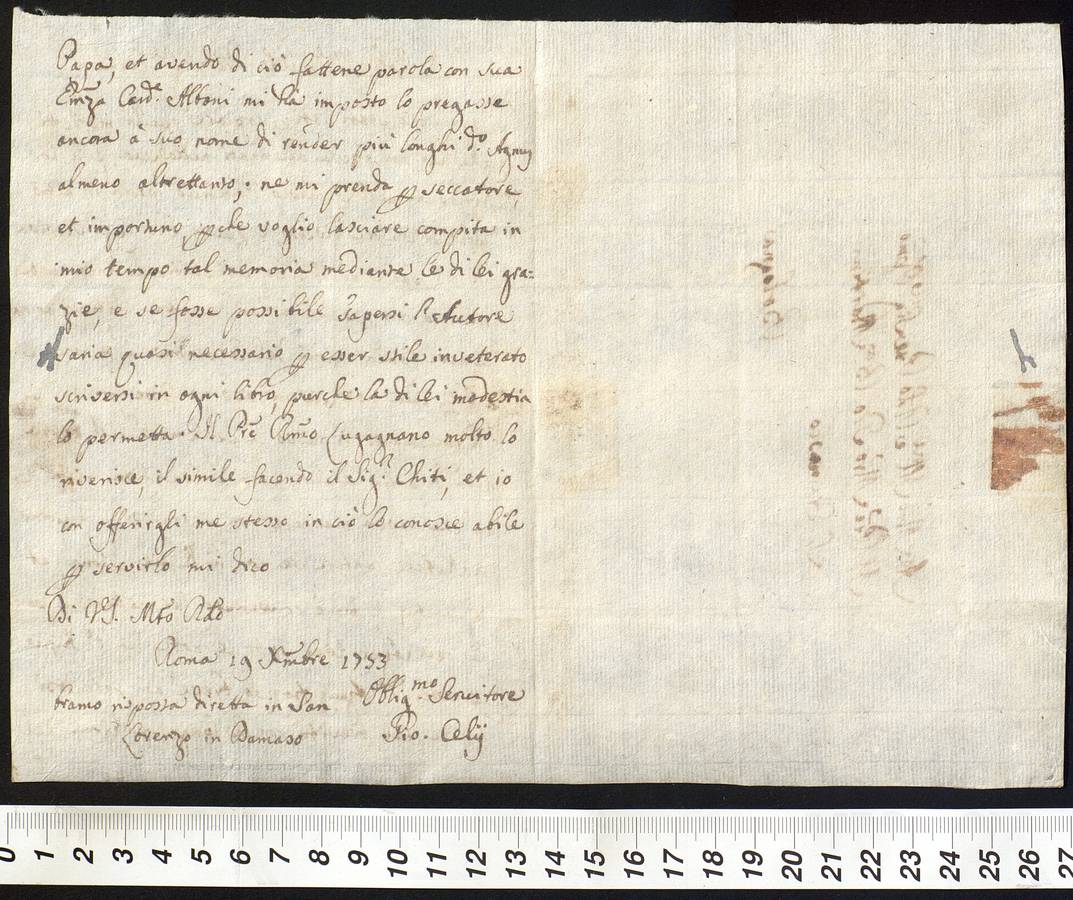 Papa, et avendo di ciò fattene parola con sua
Em̃za Card.e Albani mi hà imposto lo pregasse
ancora à suo nome di render più longhi d.o Agnus
almeno altrettanto; ne mi prenda p seccatore,
et importuno pche voglio lasciare compita in
mio tempo tal memoria mediante le di lei gra=
zie, e se fosse possibile sapersi l'Autore
saria quasi necessario p esser stile inveterato
scriversi in ogni libro, purche la di lei modestia
lo permetta. Il Pr̃e Rm̃o Zugagnano molto lo
riverisce, il simile facendo il Sig.r Chiti, et io
con offerirgli me stesso in ciò lo conosce abile
p servirlo mi dico
Di VS. Mto Rdo
Roma 19 Xm̃bre 1753
bramo risposta diretta in San
Lorenzo in Damaso
Obblig.mo Servitore
Pio. Celij
Bologna